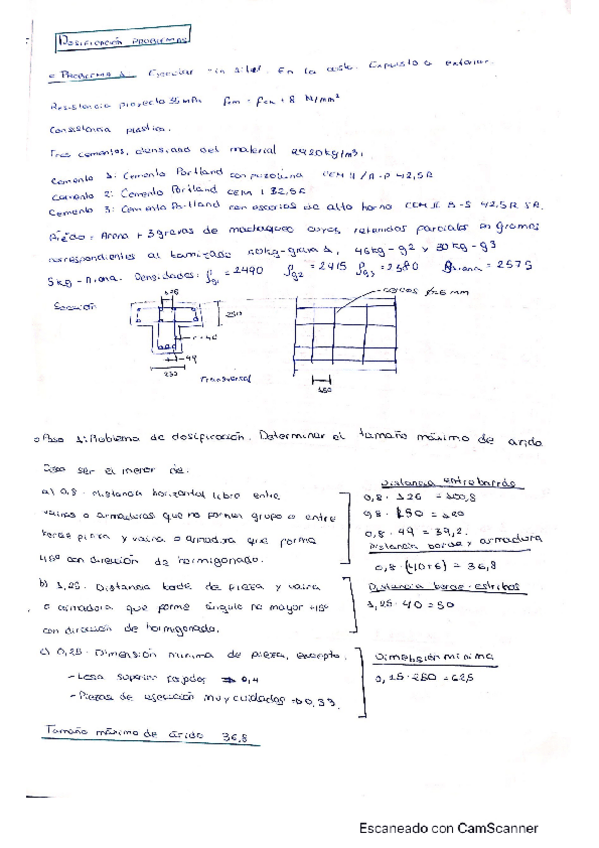 DOSIFICACIÓN PROBLEMAS
Problema 1 Ejecutar "in situ". En la costa. Expuesto a exterior.
Resistencia proyecto 35 MPa fcm = fck + 8 N/mm²
Consistencia plástica.
Tres cementos, densidad del material
Cemento 1: Cemento Portland con puzolana CEM II/A-P 42,5R
Cemento 2: Cemento Portland CEM I 32,5R
Cemento 3: Cemento Portland con escorias de alto horno 42,5R SR.
Árido: Arena + 3 gravas de machaqueo cuyos retenidos parciales en gramos
correspondientes al tamizado grava 1, 46kg - g2 y 30kg - g3
5kg - Arena. Densidades: ρg1 = 2490 ρg2 = 2415 ρg3 = 2380 ρarena = 2575
Sección
cercos
126
250
250
Transversal
150
Paso 1: Problema de dosificación. Determinar el tamaño máximo de arido
ser el menor de:
a) 0,8 · Distancia horizontal libre entre
vainas o armaduras que no formen grupo o entre
borde pieza y vaina o armadura que forma
45º con dirección de hormigonado.
Distancia entre barras
0,8 · 126 = 100,8
0,8 · 150 = 120
0,8 · 49 = 39,2.
Distancia borde y armadura
0,8 · (40+6) = 36,8
b) 1,25 · Distancia borde de pieza y vaina
o armadura que forme ángulo no mayor 45º
con dirección de hormigonado.
Distancia borde-estribos
1,25 · 40 = 50
c) 0,25 · Dimensión mínima de pieza, excepto.
- Losa superior forjados ⇒ 0,4
- Piezas de ejecución muy cuidadas ⇒ 0,33.
Dimensión mínima
0,25 · 250 = 62,5
Tamaño máximo de árido 36,8
Escaneado con CamScanner